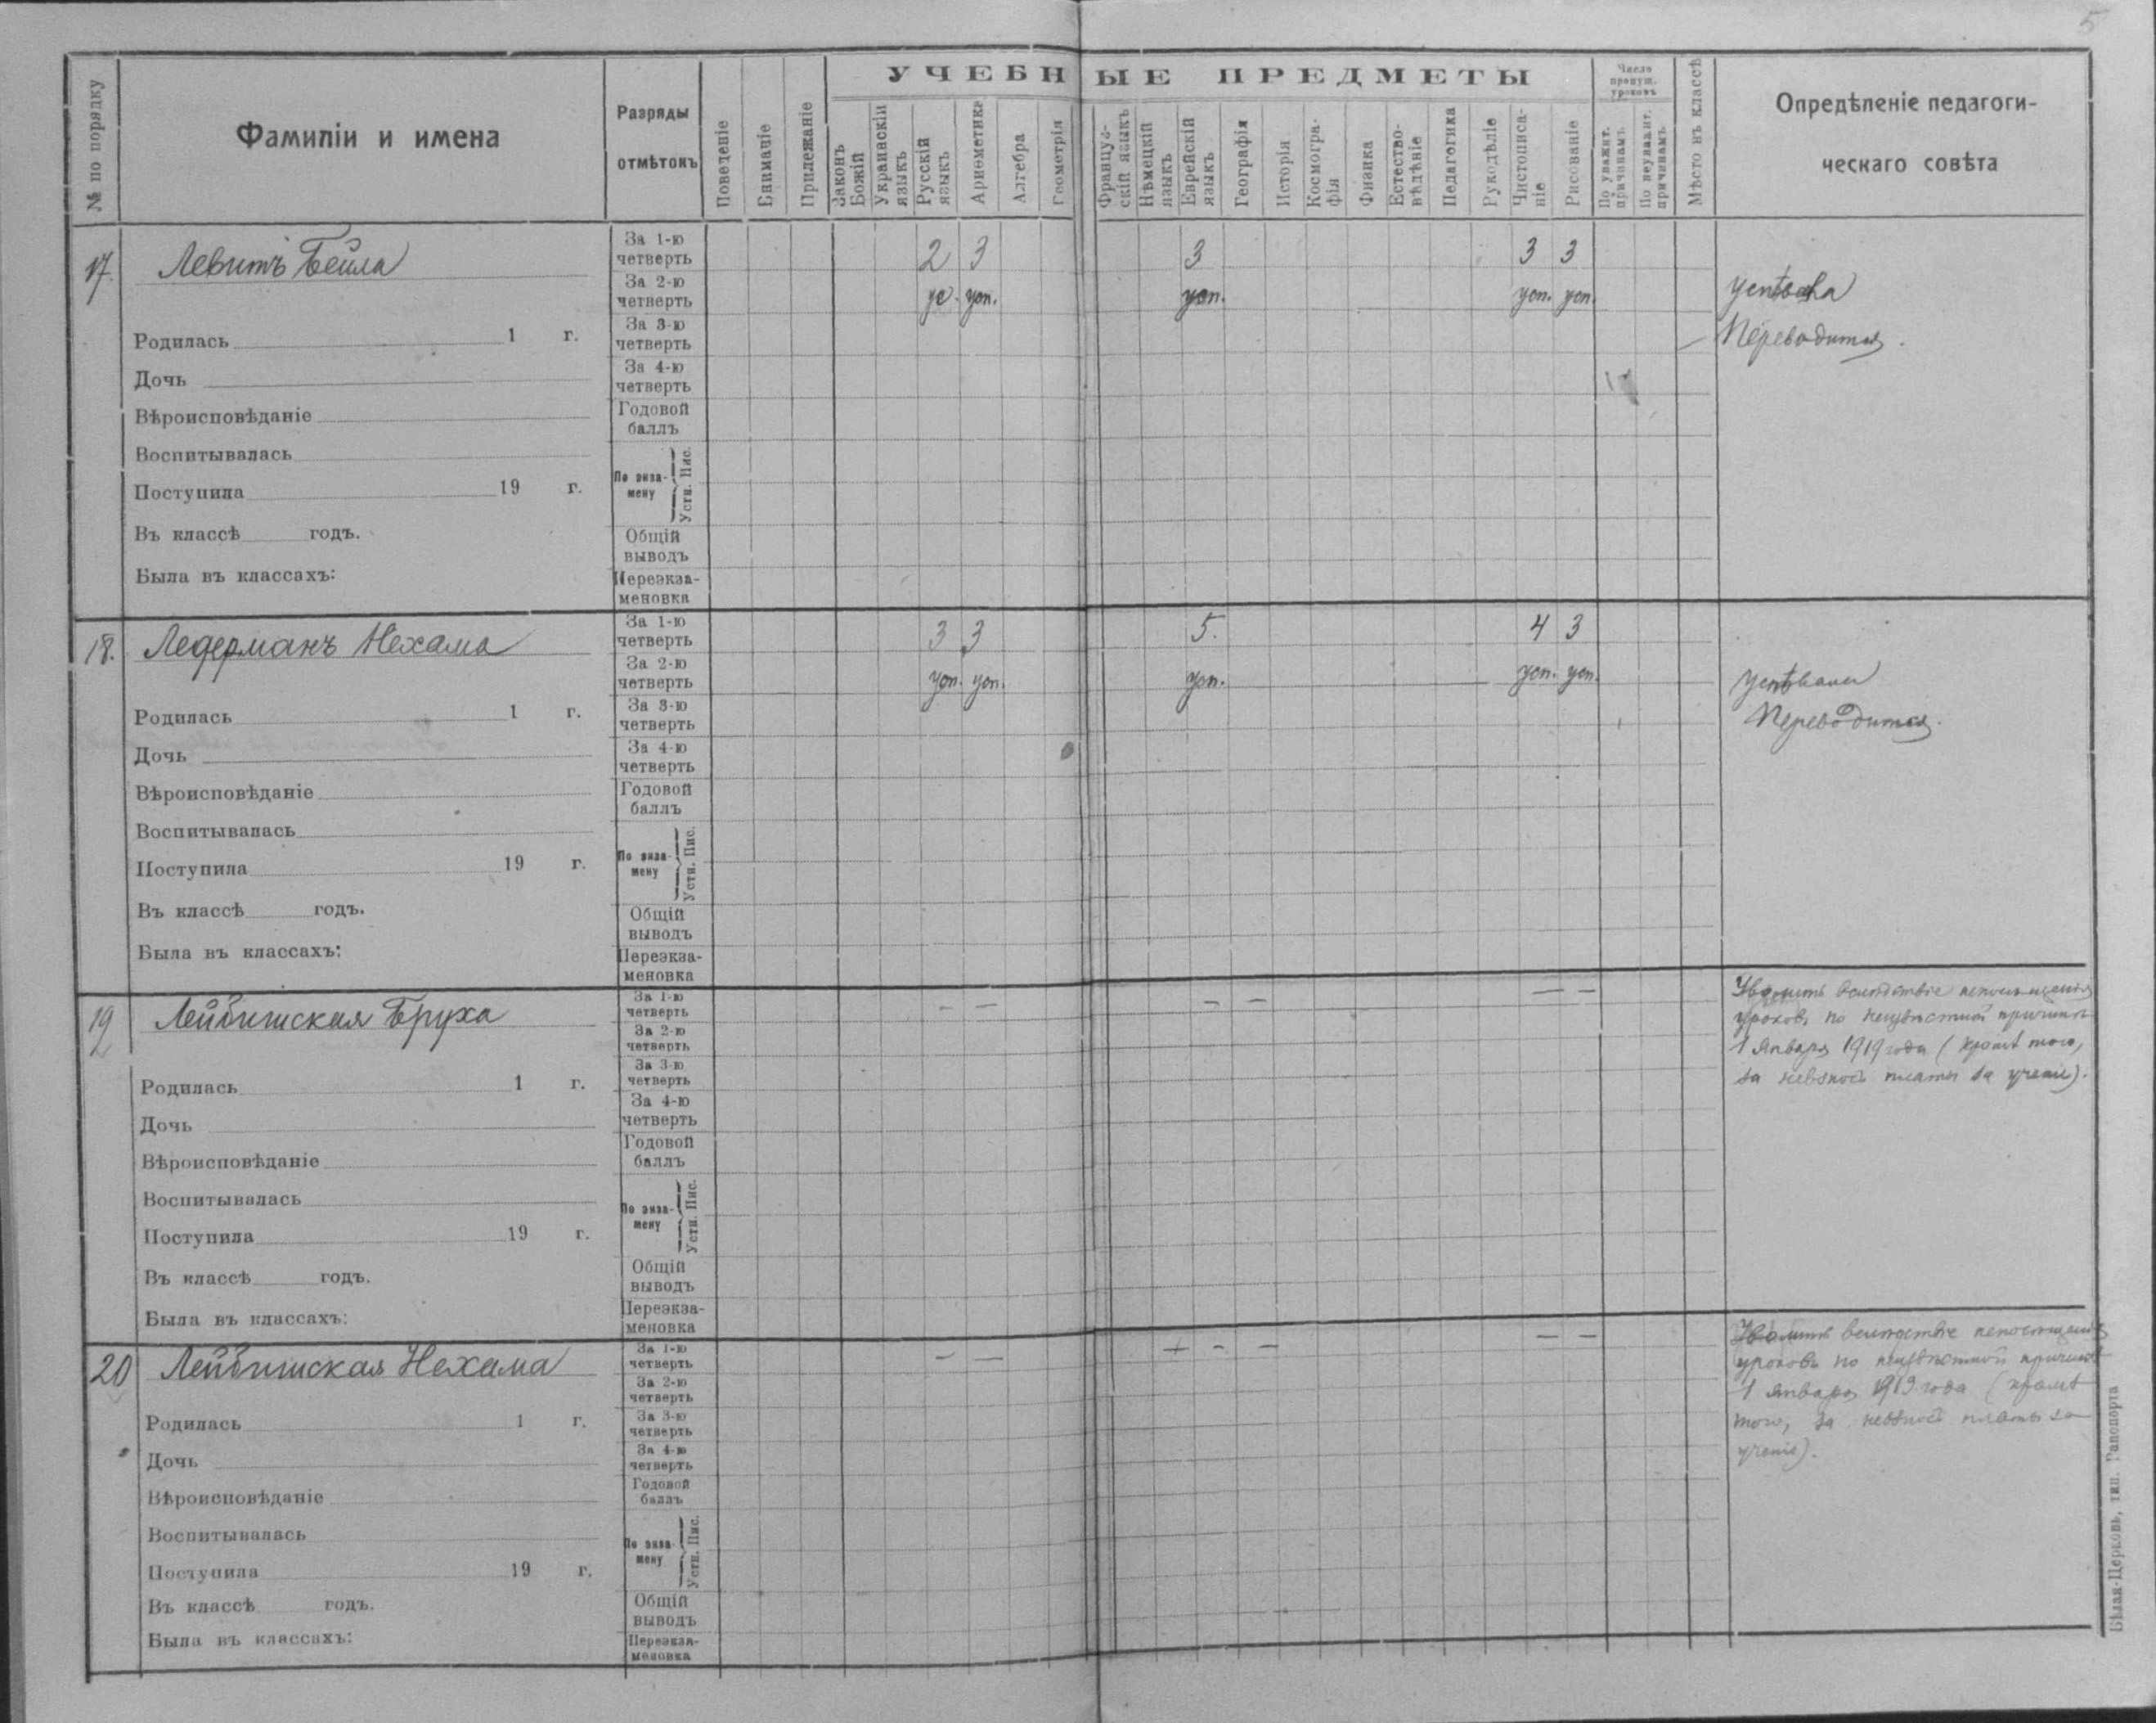 5
УЧЕБНЫЕ ПРЕДМЕТЫ
№ по порядку
Фамиліи и имена
Разряды
отмѣтокъ
Поведеніе
Вниманіе
Прилежаніе
Законъ Божій
Украинскій языкъ
Русскій языкъ
Ариѳметика
Алгебра
Геометрія
Француз-
скій языкъ
Нѣмецкій языкъ
Еврейскій языкъ
Географія
Исторія
Космогра-
фія
Физика
Естество-
вѣдѣніе
Педагогика
Рукодѣліе
Чистописа-
ніе
Рисованіе
Число
пропущ.
уроковъ
По уважит.
причинамъ
По неуважит.
причинамъ
Мѣсто въ классѣ
Опредѣленіе педагоги-
ческаго совѣта
17. Левитъ Бейла
За 1-ю четверть 2 3 3 3 3
За 2-ю четверть ус. усп. усп. усп. усп.
За 3-ю четверть
За 4-ю четверть
Годовой баллъ
По экза-
мену Устн. Пис.
Общій выводъ
Переэкза-
меновка
Родилась 1 г.
Дочь
Вѣроисповѣданіе
Воспитывалась
Поступила 19 г.
Въ классѣ годъ.
Была въ классахъ:
Переводится.
18. Ледерманъ Нехама
За 1-ю четверть 3 3 5. 4 3
За 2-ю четверть усп. усп. усп. усп. усп.
За 3-ю четверть
За 4-ю четверть
Годовой баллъ
По экза-
мену Устн. Пис.
Общій выводъ
Переэкза-
меновка
Родилась 1 г.
Дочь
Вѣроисповѣданіе
Воспитывалась
Поступила 19 г.
Въ классѣ годъ.
Была въ классахъ:
Переводится.
19 Лейбишская Бруха
За 1-ю четверть — — — — — —
За 2-ю четверть
За 3-ю четверть
За 4-ю четверть
Годовой баллъ
По экза-
мену Устн. Пис.
Общій выводъ
Переэкза-
меновка
Родилась 1 г.
Дочь
Вѣроисповѣданіе
Воспитывалась
Поступила 19 г.
Въ классѣ годъ.
Была въ классахъ:
вслѣдствіе непосѣщенія
уроковъ по неизвѣстной причинѣ
1 Января 1919 года (кромѣ того,
за невзносъ платы за ученіе).
20 Лейбишская Нехама
За 1-ю четверть — — + — — — —
За 2-ю четверть
За 3-ю четверть
За 4-ю четверть
Годовой баллъ
По экза-
мену Устн. Пис.
Общій выводъ
Переэкза-
меновка
Родилась 1 г.
Дочь
Вѣроисповѣданіе
Воспитывалась
Поступила 19 г.
Въ классѣ годъ.
Была въ классахъ:
вслѣдствіе непосѣщенія
уроковъ по неизвѣстной причинѣ
1 Января 1919 года (кромѣ
того, за невзносъ платы за
ученіе).
Бѣлая-Церковь, тип. Рапопорта